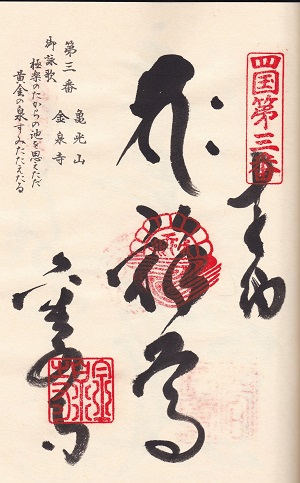 四国第三番
奉納
金泉寺
第三番
亀光山
金泉寺
御詠歌
極楽のたからの池を思えただ
黄金の泉すみたたえたる